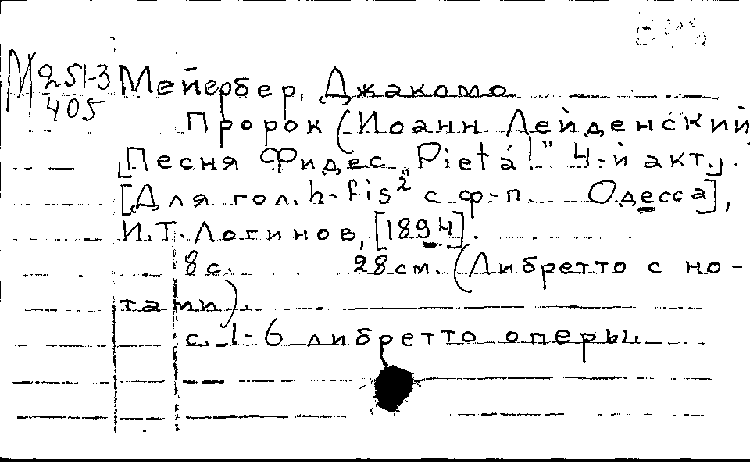 М 251-3
405
Мейербер, Джакомо
Пророк (Иоанн Лейденский
[Песня Фидес „Pietá!" 4-й акт].
[Для гол. h-fis² с ф-п. Одесса],
И.Т. Логинов, [1894].
8 с. 28 см. (Либретто с но-
тами).
с. 1-6 либретто оперы.